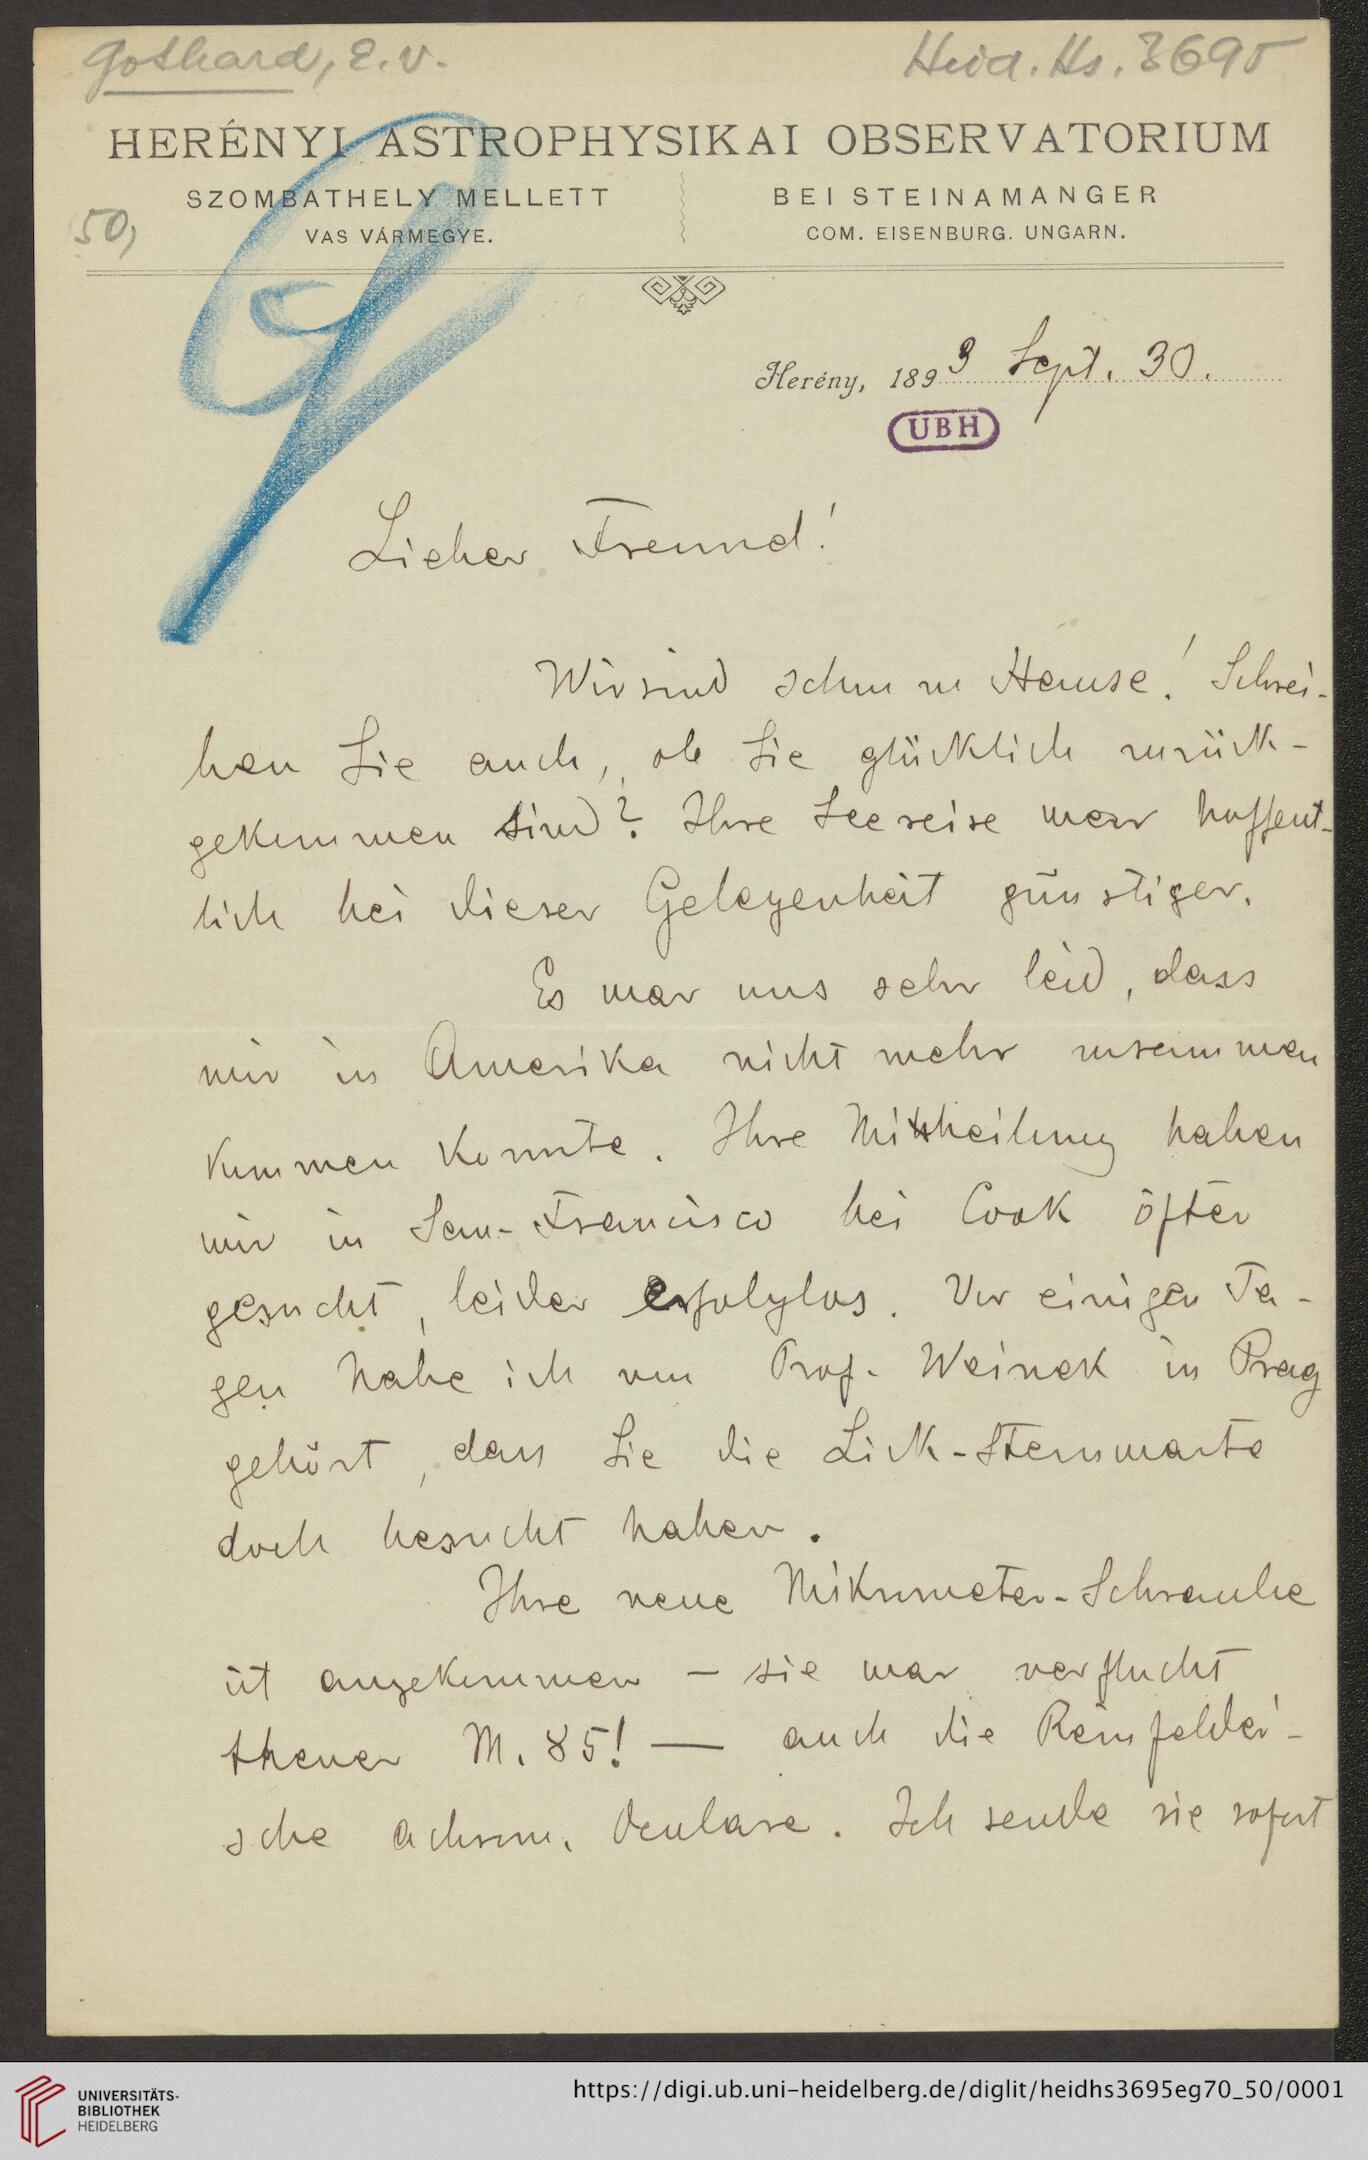 Gothard, E. v.
Heid. Hs. 3695
HERÉNYI ASTROPHYSIKAI OBSERVATORIUM
SZOMBATHELY MELLETT
VAS VÁRMEGYE.
BEI STEINAMANGER
COM. EISENBURG. UNGARN.
50,
Herény, 1893 Sept. 30.
UBH
Lieber Freund!
Wir sind schon zu Hause! Schrei-
ben Sie auch, ob Sie glücklich zurück-
gekommen sind? Ihre Seereise war hoffent-
lich bei dieser Gelegenheit günstiger.
Es war uns sehr leid, dass
wir in Amerika nicht mehr zusammen
kommen konnte. Ihre Mittheilung haben
wir in San-Francisco bei Cook öfter
gesucht, leider erfolglos. Vor einigen Ta-
gen habe ich von Prof. Weinek in Prag
gehört, dass Sie die Lick-Sternwarte
doch besucht haben.
Ihre neue Mikrometer-Schraube
ist angekommen – sie war verflucht
theuer M. 85! — auch die Reinfelder'-
sche achrom. Oculare. Ich sende sie sofort
UNIVERSITÄTS-
BIBLIOTHEK
HEIDELBERG
https://digi.ub.uni-heidelberg.de/diglit/heidhs3695eg70_50/0001